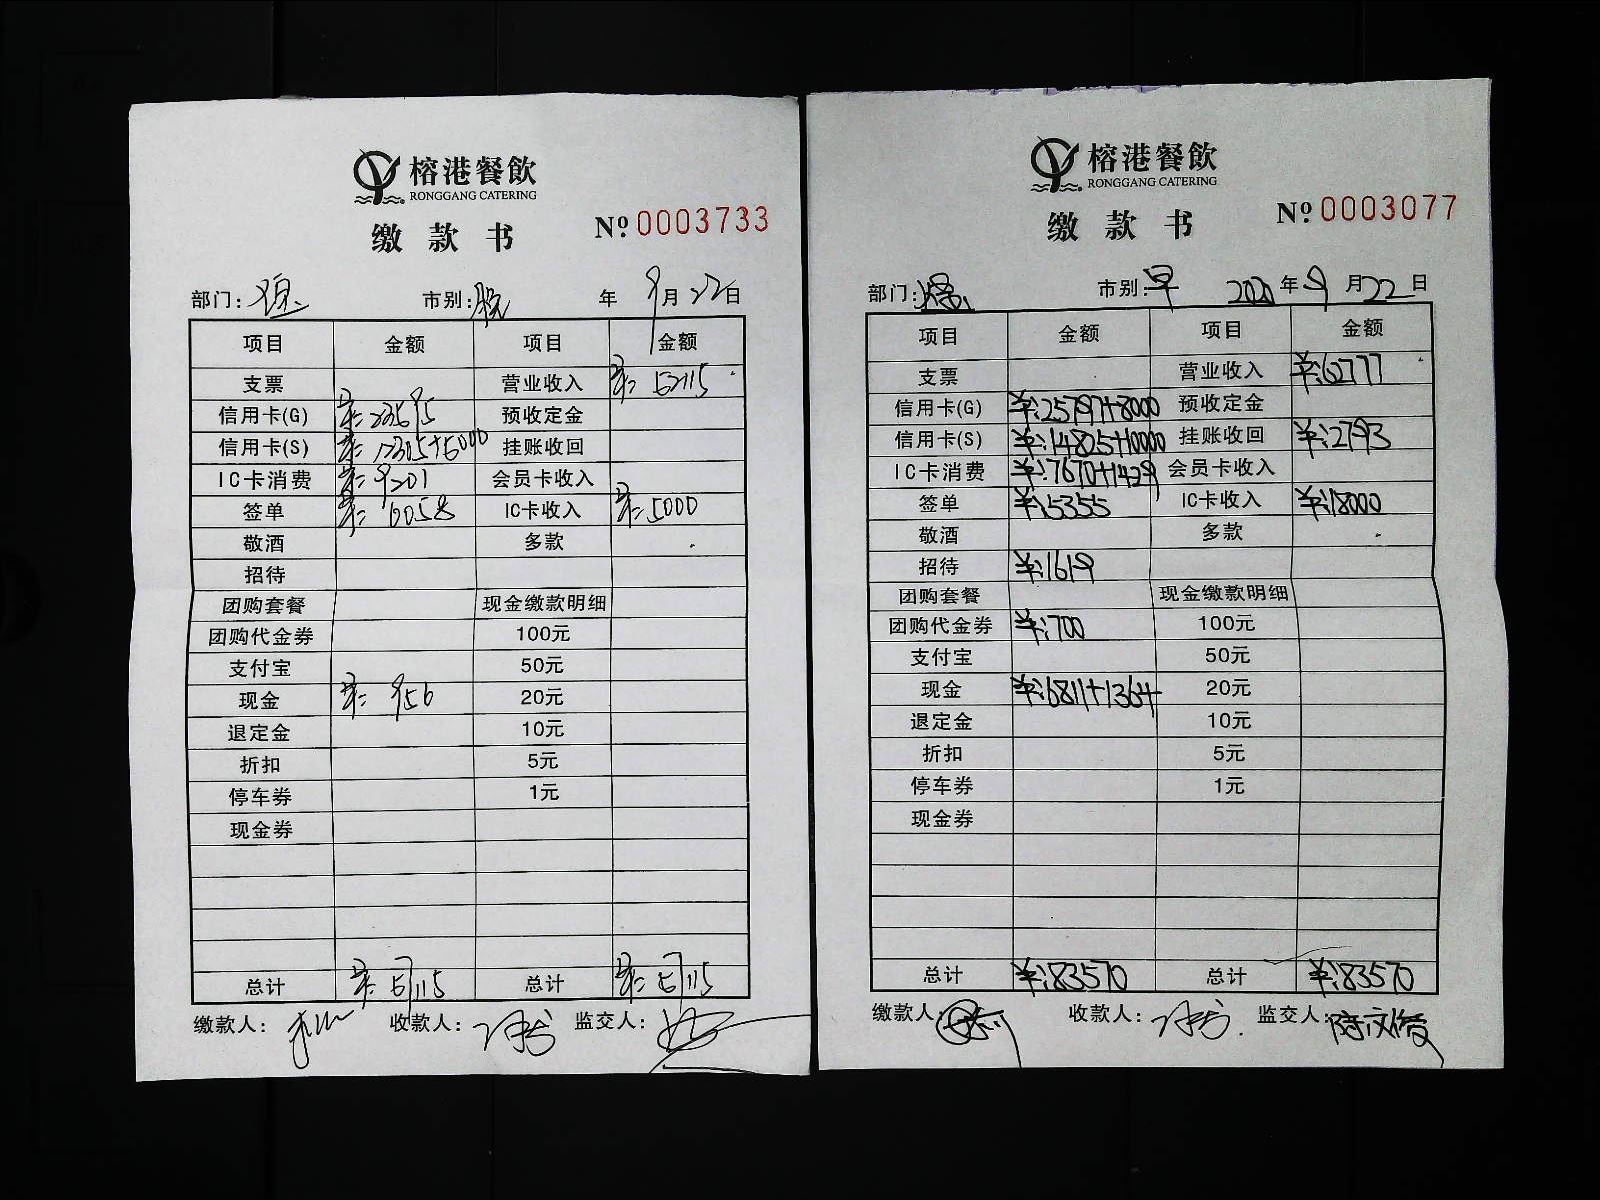 榕港餐飲
RONGGANG CATERING
缴款书
Nº 0003733
部门: 市别:晚 年 9月22日
项目 金额 项目 金额
支票 营业收入 ¥:52115
信用卡(G) ¥:22595 预收定金
信用卡(S) ¥:13305+5000 挂账收回
IC卡消费 ¥:9201 会员卡收入
签单 ¥:6058 IC卡收入 ¥:5000
敬酒 多款
招待
团购套餐 现金缴款明细
团购代金券 100元
支付宝 50元
现金 ¥:956 20元
退定金 10元
折扣 5元
停车券 1元
现金券
总计 ¥:57115 总计 ¥:57115
缴款人: 收款人: 监交人:
榕港餐飲
RONGGANG CATERING
缴款书
Nº 0003077
部门: 市别:早 年9月22日
项目 金额 项目 金额
支票 营业收入 ¥:62777
信用卡(G) ¥:25797+8000 预收定金
信用卡(S) ¥:14825+10000 挂账收回 ¥:2793
IC卡消费 ¥:7670+1429 会员卡收入
签单 ¥:5355 IC卡收入 ¥:18000
敬酒 多款
招待 ¥:1619
团购套餐 现金缴款明细
团购代金券 ¥:700 100元
支付宝 50元
现金 ¥:6811+1364 20元
退定金 10元
折扣 5元
停车券 1元
现金券
总计 ¥:83570 总计 ¥:83570
缴款人: 收款人: 监交人:陈文俊